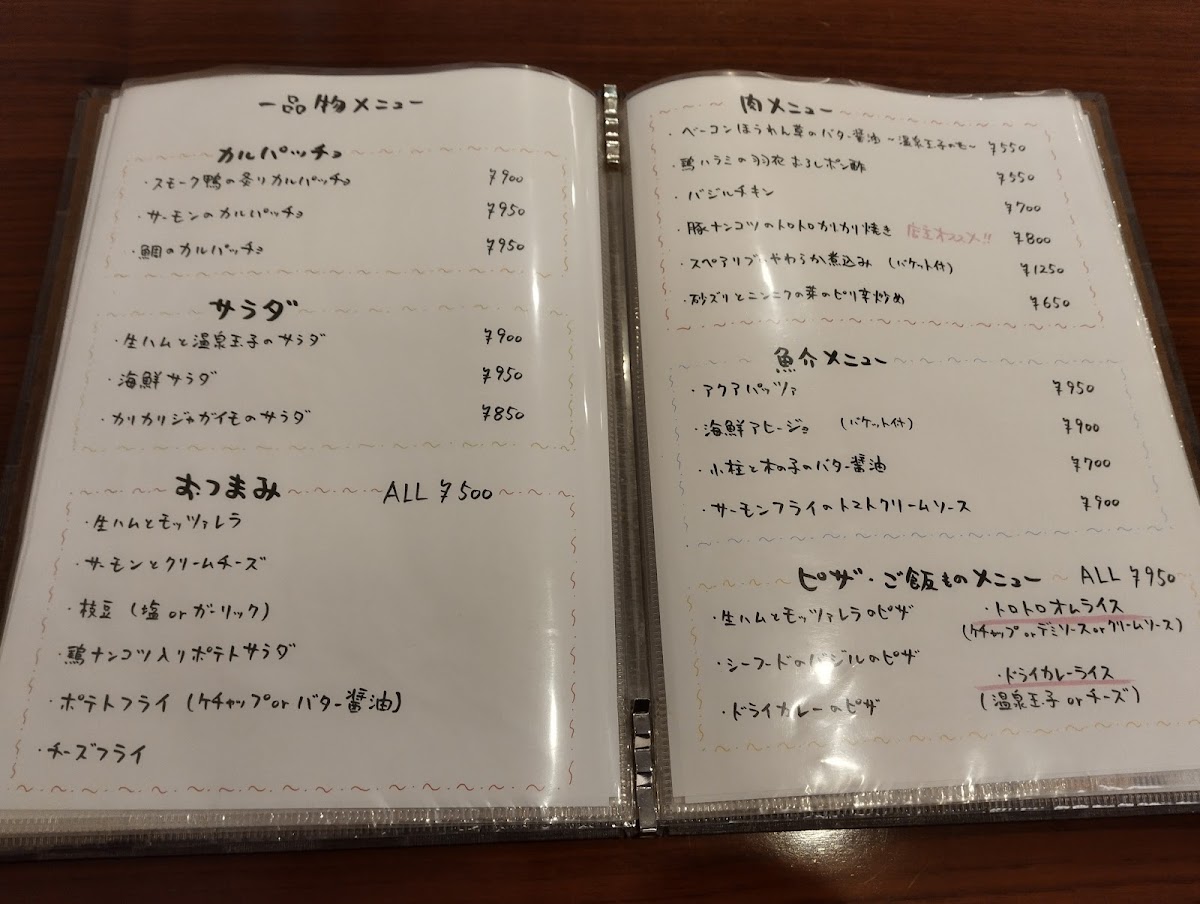 一品物メニュー
カルパッチョ
・スモーク鴨の炙りカルパッチョ ¥900
・サーモンのカルパッチョ ¥950
・鯛のカルパッチョ ¥950
サラダ
・生ハムと温泉玉子のサラダ ¥900
・海鮮サラダ ¥950
・カリカリジャガイモのサラダ ¥850
おつまみ ALL ¥500
・生ハムとモッツァレラ
・サーモンとクリームチーズ
・枝豆(塩 or ガーリック)
・鶏ナンコツ入りポテトサラダ
・ポテトフライ(ケチャップ or バター醤油)
・チーズフライ
肉メニュー
・ベーコンほうれん草のバター醤油 〜温泉玉子のせ〜 ¥550
・鶏ハラミの羽衣おろしポン酢 ¥550
・バジルチキン ¥700
・豚ナンコツのトロトロカリカリ焼き 店主オススメ!! ¥800
・スペアリブのやわらか煮込み (バケット付) ¥1250
・砂ズリとニンニクの芽のピリ辛炒め ¥650
魚介メニュー
・アクアパッツァ ¥950
・海鮮アヒージョ (バケット付) ¥900
・小柱と木の子のバター醤油 ¥700
・サーモンフライのトマトクリームソース ¥900
ピザ・ご飯ものメニュー ALL ¥950
・生ハムとモッツァレラのピザ
・シーフードのバジルのピザ
・ドライカレーのピザ
・トロトロオムライス
(ケチャップ or デミソース or クリームソース)
・ドライカレーライス
(温泉玉子 or チーズ)